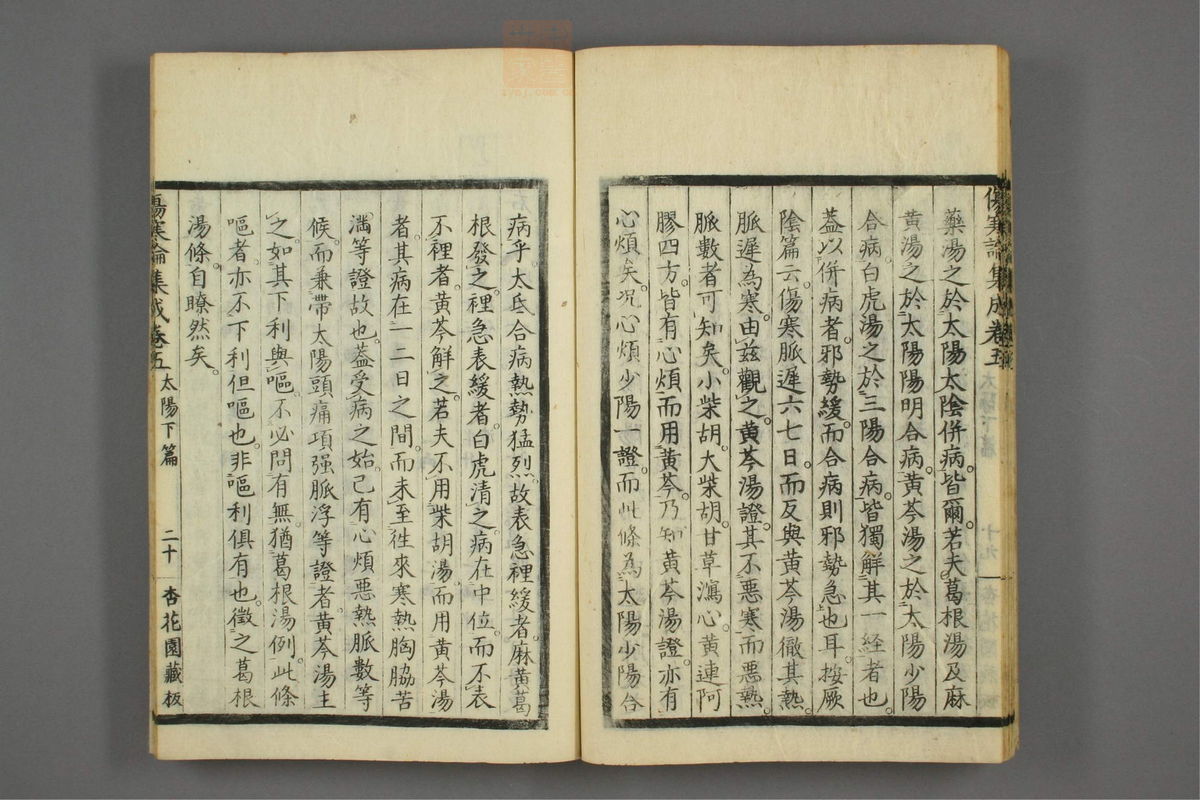 藥湯之於太陽太陰併病。皆爾。若夫葛根湯及麻
黃湯之於太陽陽明合病。黃芩湯之於太陽少陽
合病。白虎湯之於三陽合病。皆獨解其一経者也。
蓋以併病者。邪勢緩。而合病則邪勢急也耳。按厥
陰篇云。傷寒脈遲六七日。而反與黃芩湯徹其熱。
脈遲為寒。由茲觀之。黃芩湯證。其不惡寒而惡熱。
脈數者可知矣。小柴胡。大柴胡。甘草瀉心。黃連阿
膠四方。皆有心煩而用黃芩。乃知黃芩湯證。亦有
心煩矣。况心煩少陽一證。而此條為太陽少陽合
傷寒論集成卷五
病乎。太氐合病熱勢猛烈。故表急裡緩者。麻黃葛
根發之。裡急表緩者。白虎清之。病在中位。而不表
不裡者。黃芩解之。若夫不用柴胡湯。而用黃芩湯
者。其病在一二日之間。而未至徃來寒熱胸脇苦
滿等證故也。蓋受病之始。已有心煩惡熱脈數等
候。而兼帶太陽頭痛項强脈浮等證者。黃芩湯主
之。如其下利與嘔。不必問有無。猶葛根湯例。此條
嘔者。亦不下利但嘔也。非嘔利俱有也。徵之葛根
湯條。自瞭然矣。
傷寒論集成卷五 太陽下篇 二十 杏花園藏板